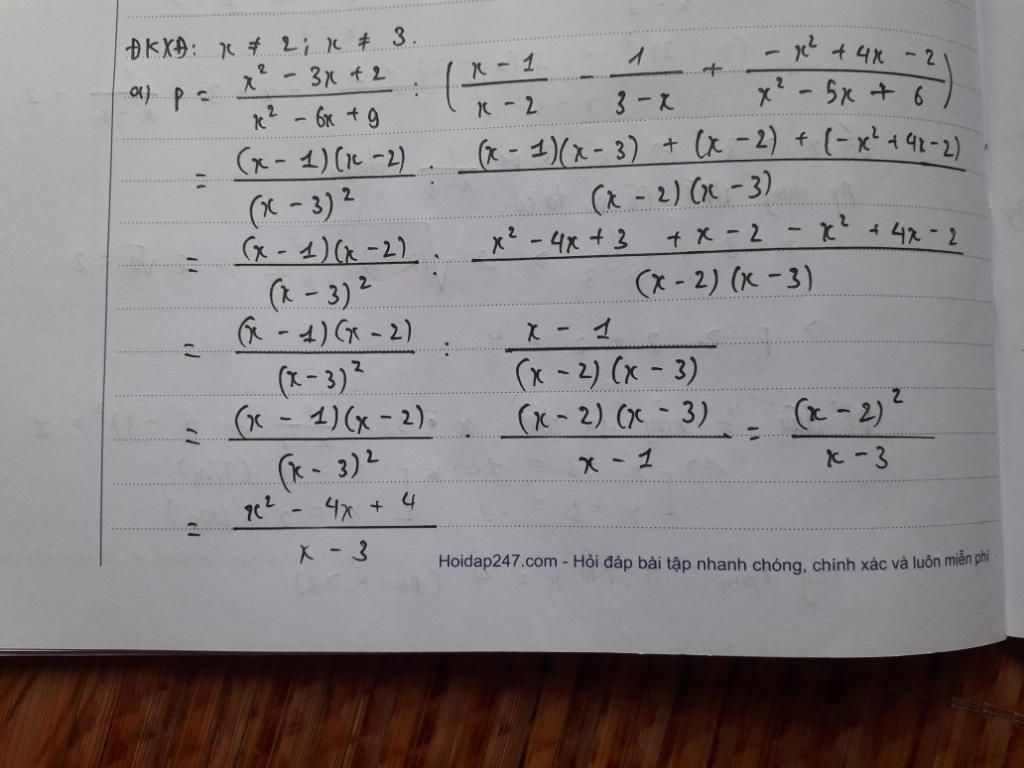 ĐKXĐ: x ≠ 2; x ≠ 3.
a) P = (x² - 3x + 2)/(x² - 6x + 9) : ( (x - 1)/(x - 2) - 1/(3 - x) + (-x² + 4x - 2)/(x² - 5x + 6) )
= ((x - 1)(x - 2))/((x - 3)²) : ((x - 1)(x - 3) + (x - 2) + (-x² + 4x - 2))/((x - 2)(x - 3))
= ((x - 1)(x - 2))/((x - 3)²) : (x² - 4x + 3 + x - 2 - x² + 4x - 2)/((x - 2)(x - 3))
= ((x - 1)(x - 2))/((x - 3)²) : (x - 1)/((x - 2)(x - 3))
= ((x - 1)(x - 2))/((x - 3)²) . ((x - 2)(x - 3))/(x - 1) = ((x - 2)²)/(x - 3)
= (x² - 4x + 4)/(x - 3)
Hoidap247.com - Hỏi đáp bài tập nhanh chóng, chính xác và luôn miễn phí